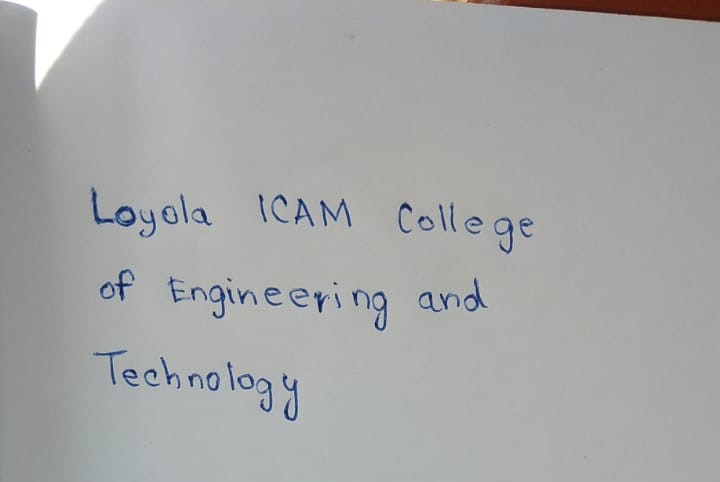 Loyola ICAM College
of Engineering and
Technology